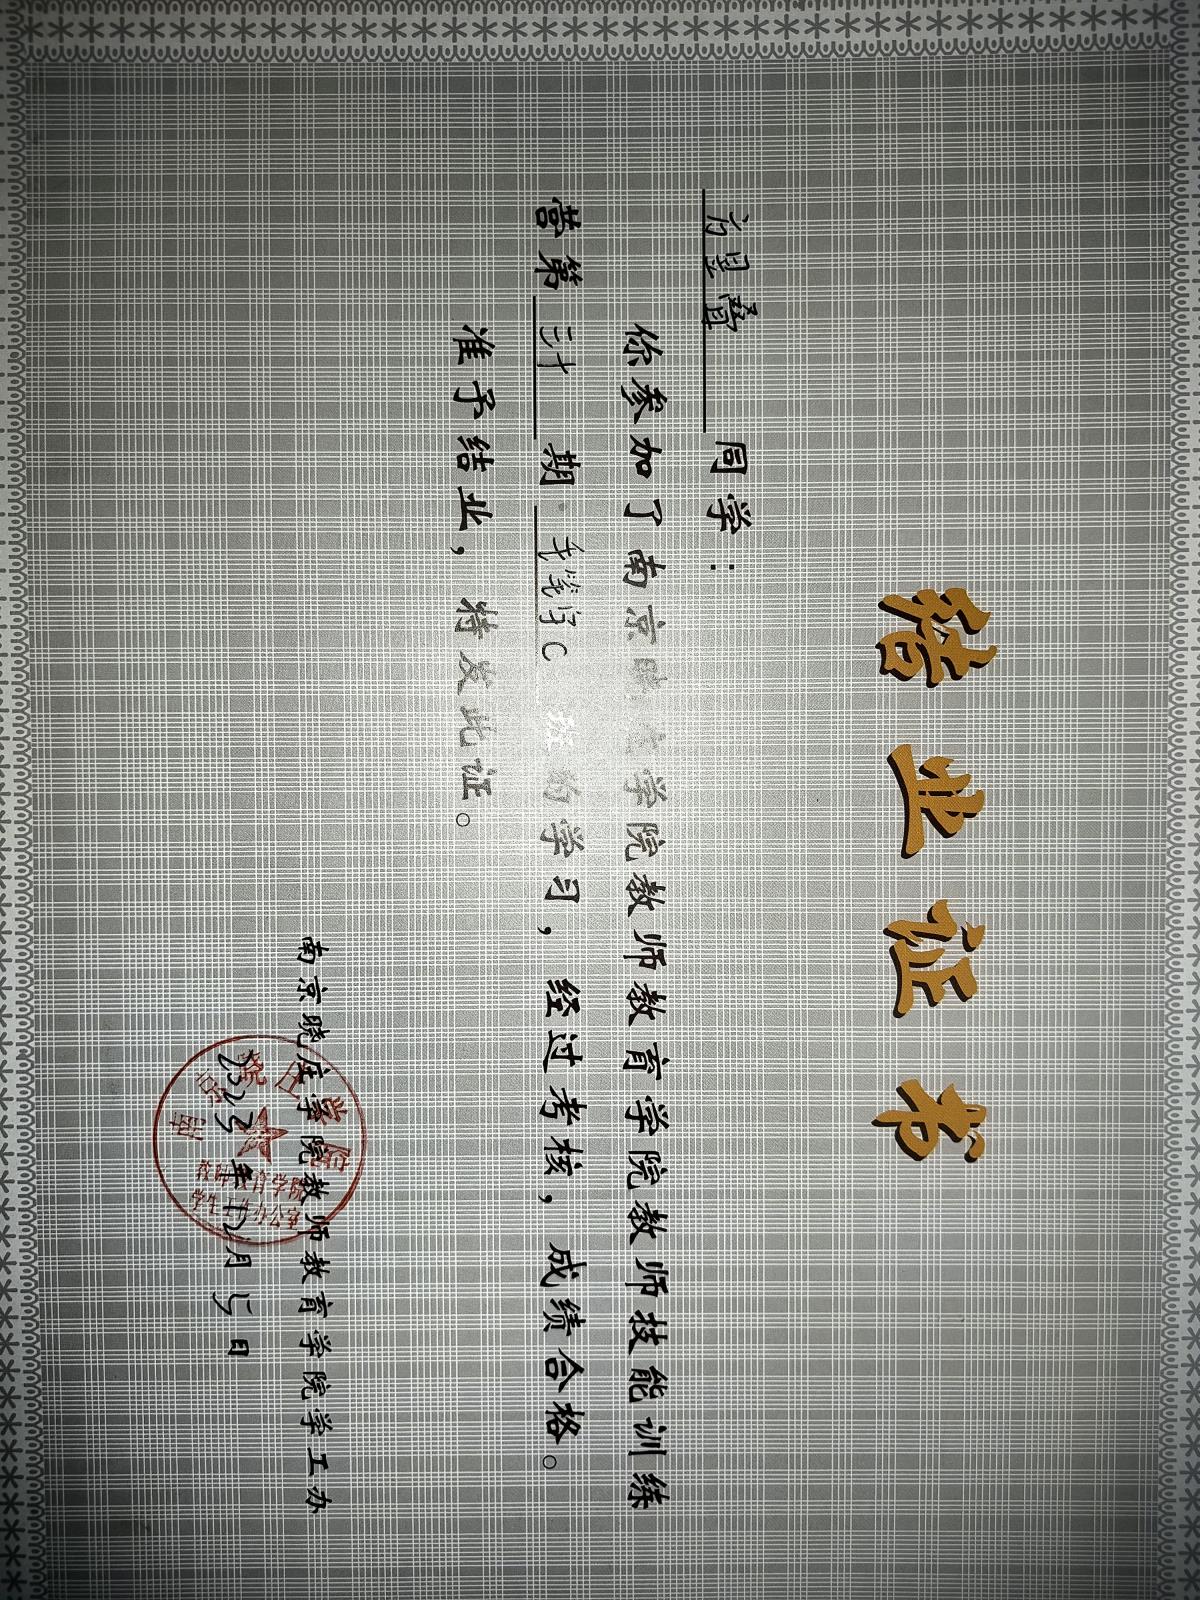 结业证书
同学：
你参加了南京晓庄学院教师教育学院教师技能训练
营第三十期手笺写C班的学习，经过考核，成绩合格。
准予结业，特发此证。
南京晓庄学院教师教育学院学工办
2023年 月 日
南京晓庄学院
教师教育学院
学生工作办公室